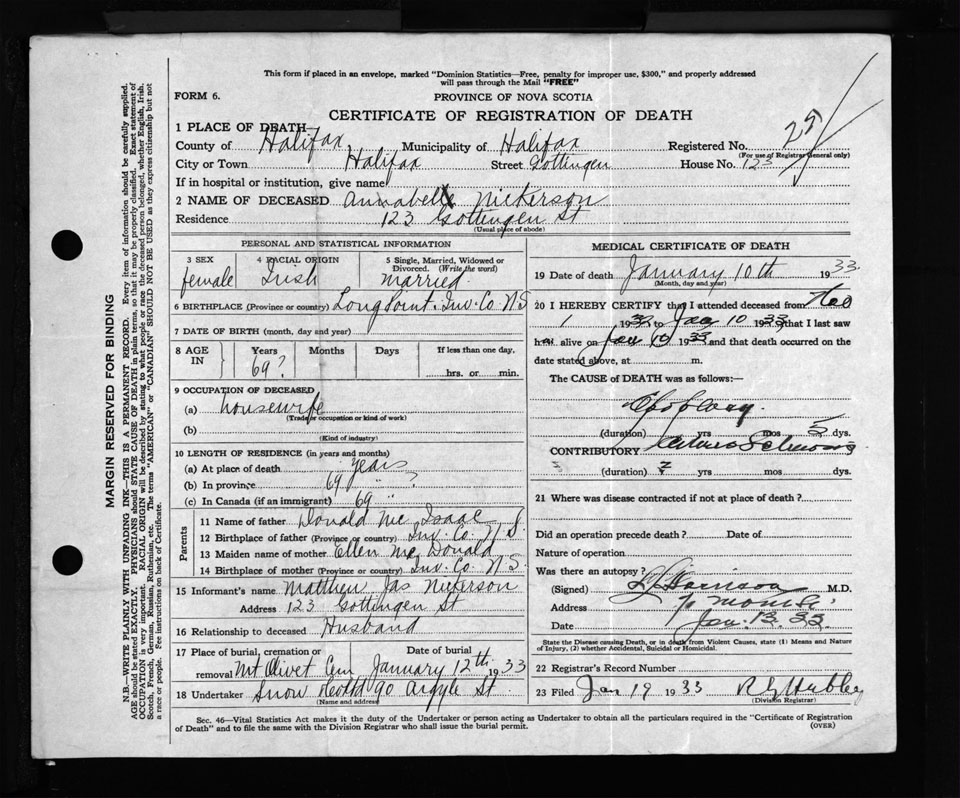 This form if placed in an envelope, marked "Dominion Statistics—Free, penalty for improper use, $300," and properly addressed
will pass through the Mail "FREE"
FORM 6.
PROVINCE OF NOVA SCOTIA
CERTIFICATE OF REGISTRATION OF DEATH
25
1 PLACE OF DEATH—
County of Halifax Municipality of Halifax Registered No.
(For use of Registrar General only)
City or Town Halifax Street Gottingen House No. 123
If in hospital or institution, give name
2 NAME OF DECEASED Annabell Nickerson
Residence 123 Gottingen St
(Usual place of abode)
PERSONAL AND STATISTICAL INFORMATION
3 SEX
female
4 RACIAL ORIGIN
Irish
5 Single, Married, Widowed or Divorced. (Write the word)
married
6 BIRTHPLACE (Province or country) Long Point. Inv. Co. N S
7 DATE OF BIRTH (month, day and year)
8 AGE IN
Years
69?
Months
Days
If less than one day,
hrs. or min.
9 OCCUPATION OF DECEASED
(a) housewife
(Trade, occupation or kind of work)
(b)
(Kind of industry)
10 LENGTH OF RESIDENCE (in years and months)
(a) At place of death years
(b) In province 69 " ?
(c) In Canada (if an immigrant) 69 "
Parents
11 Name of father Donald Mc Isaac
12 Birthplace of father (Province or country) Inv. Co. N S
13 Maiden name of mother Ellen Mc Donald
14 Birthplace of mother (Province or country) Inv. Co. N S.
15 Informant's name Matthew Jas Nickerson
Address 123 Gottingen St
16 Relationship to deceased Husband
17 Place of burial, cremation or removal Mt Olivet Cem
Date of burial January 12th 1933
18 Undertaker Snow 90 Argyle St.
(Name and address)
MEDICAL CERTIFICATE OF DEATH
19 Date of death January 10th 1933
(Month, day and year)
20 I HEREBY CERTIFY that I attended deceased from
1 19 to Jan 10 1933, that I last saw
h alive on Jan 10 1933 and that death occurred on the
date stated above, at m.
The CAUSE OF DEATH was as follows:—
(duration) yrs mos 5 dys.
CONTRIBUTORY
(duration) ? yrs mos dys.
21 Where was disease contracted if not at place of death?
Did an operation precede death? Date of
Nature of operation
Was there an autopsy?
(Signed) M.D.
Address
Date Jan. 13. 33.
State the Disease causing Death, or in death from Violent Causes, state (1) Means and Nature
of Injury, (2) whether Accidental, Suicidal or Homicidal.
22 Registrar's Record Number
23 Filed Jan 19 1933 R G Hubley
(Division Registrar)
Sec. 46—Vital Statistics Act makes it the duty of the Undertaker or person acting as Undertaker to obtain all the particulars required in the "Certificate of Registration
of Death" and to file the same with the Division Registrar who shall issue the burial permit.
(OVER)
MARGIN RESERVED FOR BINDING
N.B.—WRITE PLAINLY WITH UNFADING INK—THIS IS A PERMANENT RECORD. Every item of information should be carefully supplied.
AGE should be stated EXACTLY. PHYSICIANS should STATE CAUSE OF DEATH in plain terms, so that it may be properly classified. Exact statement of
OCCUPATION is very important. RACIAL ORIGIN will be described by stating to what people or race the deceased person belonged, whether English, Irish,
Scotch, French, German, Russian, Ruthenian, etc. The terms "AMERICAN" or "CANADIAN" SHOULD NOT BE USED as they express citizenship but not
a race or people. Fee instructions on back of Certificate.